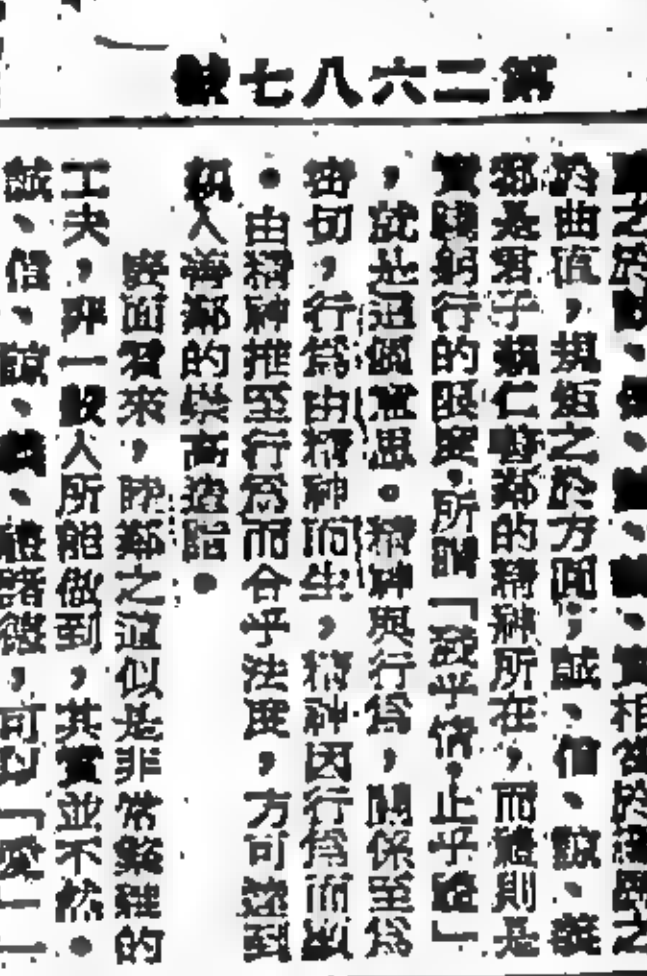 第二六八七號
之於　、　、　、　、實相等於繩墨之
於曲直，規矩之於方圓；誠、信、諒、義
都是君子親仁善鄰的精神所在，而禮則是
實踐躬行的限度。所謂「發乎情，止乎禮」
，就是這個意思。精神與行為，關係至為
密切，行為由精神而生，精神因行為而
。由精神推至行為而合乎法度，方可達到
親人善鄰的崇高造詣。
表面看來，睦鄰之道似是非常繁雜的
工夫，非一般人所能做到，其實並不然。
誠、信、諒、義、禮諸德，可以「愛」一